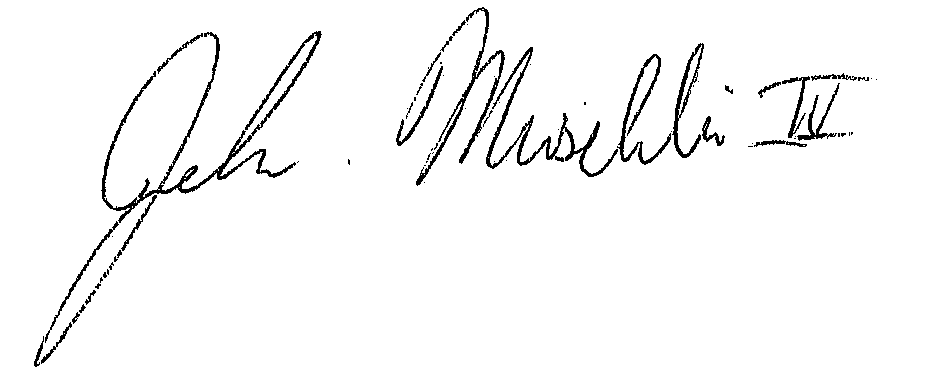 John Muschler IV